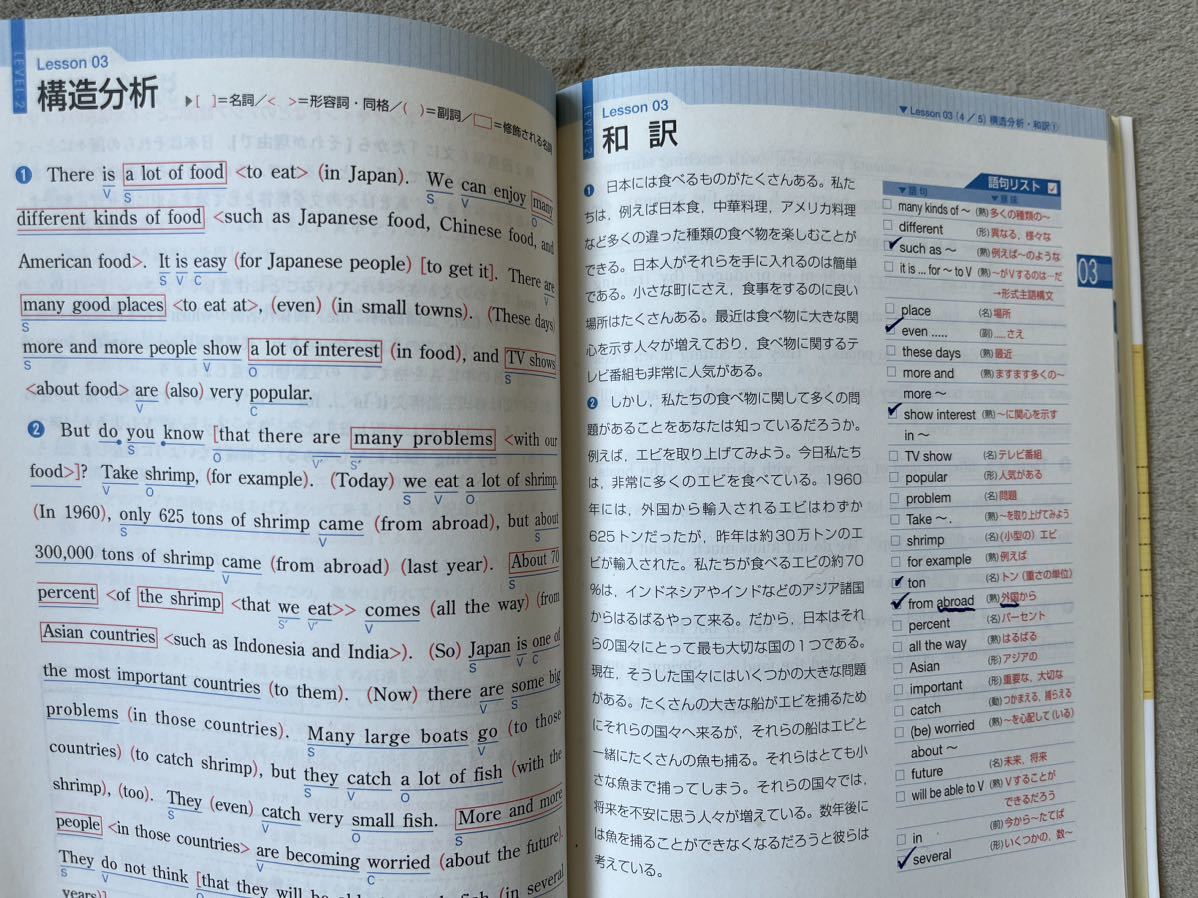 LEVEL-2
Lesson 03
構造分析
▶[ ]=名詞/< >=形容詞・同格/( )=副詞/□=修飾される名詞
❶ There is a lot of food <to eat> (in Japan). We can enjoy many
V S S V O
different kinds of food <such as Japanese food, Chinese food, and
American food>. It is easy (for Japanese people) [to get it]. There are
S V C V
many good places <to eat at>, (even) (in small towns). (These days)
S
more and more people show a lot of interest (in food), and TV shows
S V O S
<about food> are (also) very popular.
V C
❷ But do you know [that there are many problems <with our
S O V' S'
food>]? Take shrimp, (for example). (Today) we eat a lot of shrimp.
V O S V O
(In 1960), only 625 tons of shrimp came (from abroad), but about
S V S
300,000 tons of shrimp came (from abroad) (last year). About 70
V S
percent <of the shrimp <that we eat>> comes (all the way) (from
S' V' V
Asian countries <such as Indonesia and India>). (So) Japan is one of
S V C
the most important countries (to them). (Now) there are some big
V S
problems (in those countries). Many large boats go (to those
S V
countries) (to catch shrimp), but they catch a lot of fish (with the
S V O
shrimp), (too). They (even) catch very small fish. More and more
S V O S
people <in those countries> are becoming worried (about the future).
V C
They do not think [that they will be able to catch fish (in several
S V O
years)]
LEVEL-2
Lesson 03
和訳
▼Lesson 03 (4/5) 構造分析・和訳①
❶ 日本には食べるものがたくさんある。私た
ちは,例えば日本食,中華料理,アメリカ料理
など多くの違った種類の食べ物を楽しむことが
できる。日本人がそれらを手に入れるのは簡単
である。小さな町にさえ,食事をするのに良い
場所はたくさんある。最近は食べ物に大きな関
心を示す人々が増えており,食べ物に関するテ
レビ番組も非常に人気がある。
❷ しかし,私たちの食べ物に関して多くの問
題があることをあなたは知っているだろうか。
例えば,エビを取り上げてみよう。今日私たち
は,非常に多くのエビを食べている。1960
年には,外国から輸入されるエビはわずか
625トンだったが,昨年は約30万トンのエ
ビが輸入された。私たちが食べるエビの約70
%は,インドネシアやインドなどのアジア諸国
からはるばるやって来る。だから,日本はそれ
らの国々にとって最も大切な国の1つである。
現在,そうした国々にはいくつかの大きな問題
がある。たくさんの大きな船がエビを捕るため
にそれらの国々へ来るが,それらの船はエビと
一緒にたくさんの魚も捕る。それらはとても小
さな魚まで捕ってしまう。それらの国々では,
将来を不安に思う人々が増えている。数年後に
は魚を捕ることができなくなるだろうと彼らは
考えている。
語句リスト
▼語句 ▼意味
many kinds of ~ (熟)多くの種類の~
different (形)異なる,様々な
such as ~ (熟)例えば~のような
it is ... for ~ to V (熟)~がVするのは…だ
→形式主語構文
place (名)場所
even ..... (副).....さえ
these days (熟)最近
more and (熟)ますます多くの~
more ~
show interest (熟)~に関心を示す
in ~
TV show (名)テレビ番組
popular (形)人気がある
problem (名)問題
Take ~. (熟)~を取り上げてみよう
shrimp (名)(小型の)エビ
for example (熟)例えば
ton (名)トン(重さの単位)
from abroad (熟)外国から
percent (名)パーセント
all the way (熟)はるばる
Asian (形)アジアの
important (形)重要な,大切な
catch (動)つかまえる,捕らえる
(be) worried (熟)~を心配して(いる)
about ~
future (名)未来,将来
will be able to V (熟)Vすることが
できるだろう
in (前)今から~たてば
several (形)いくつかの,数~
03